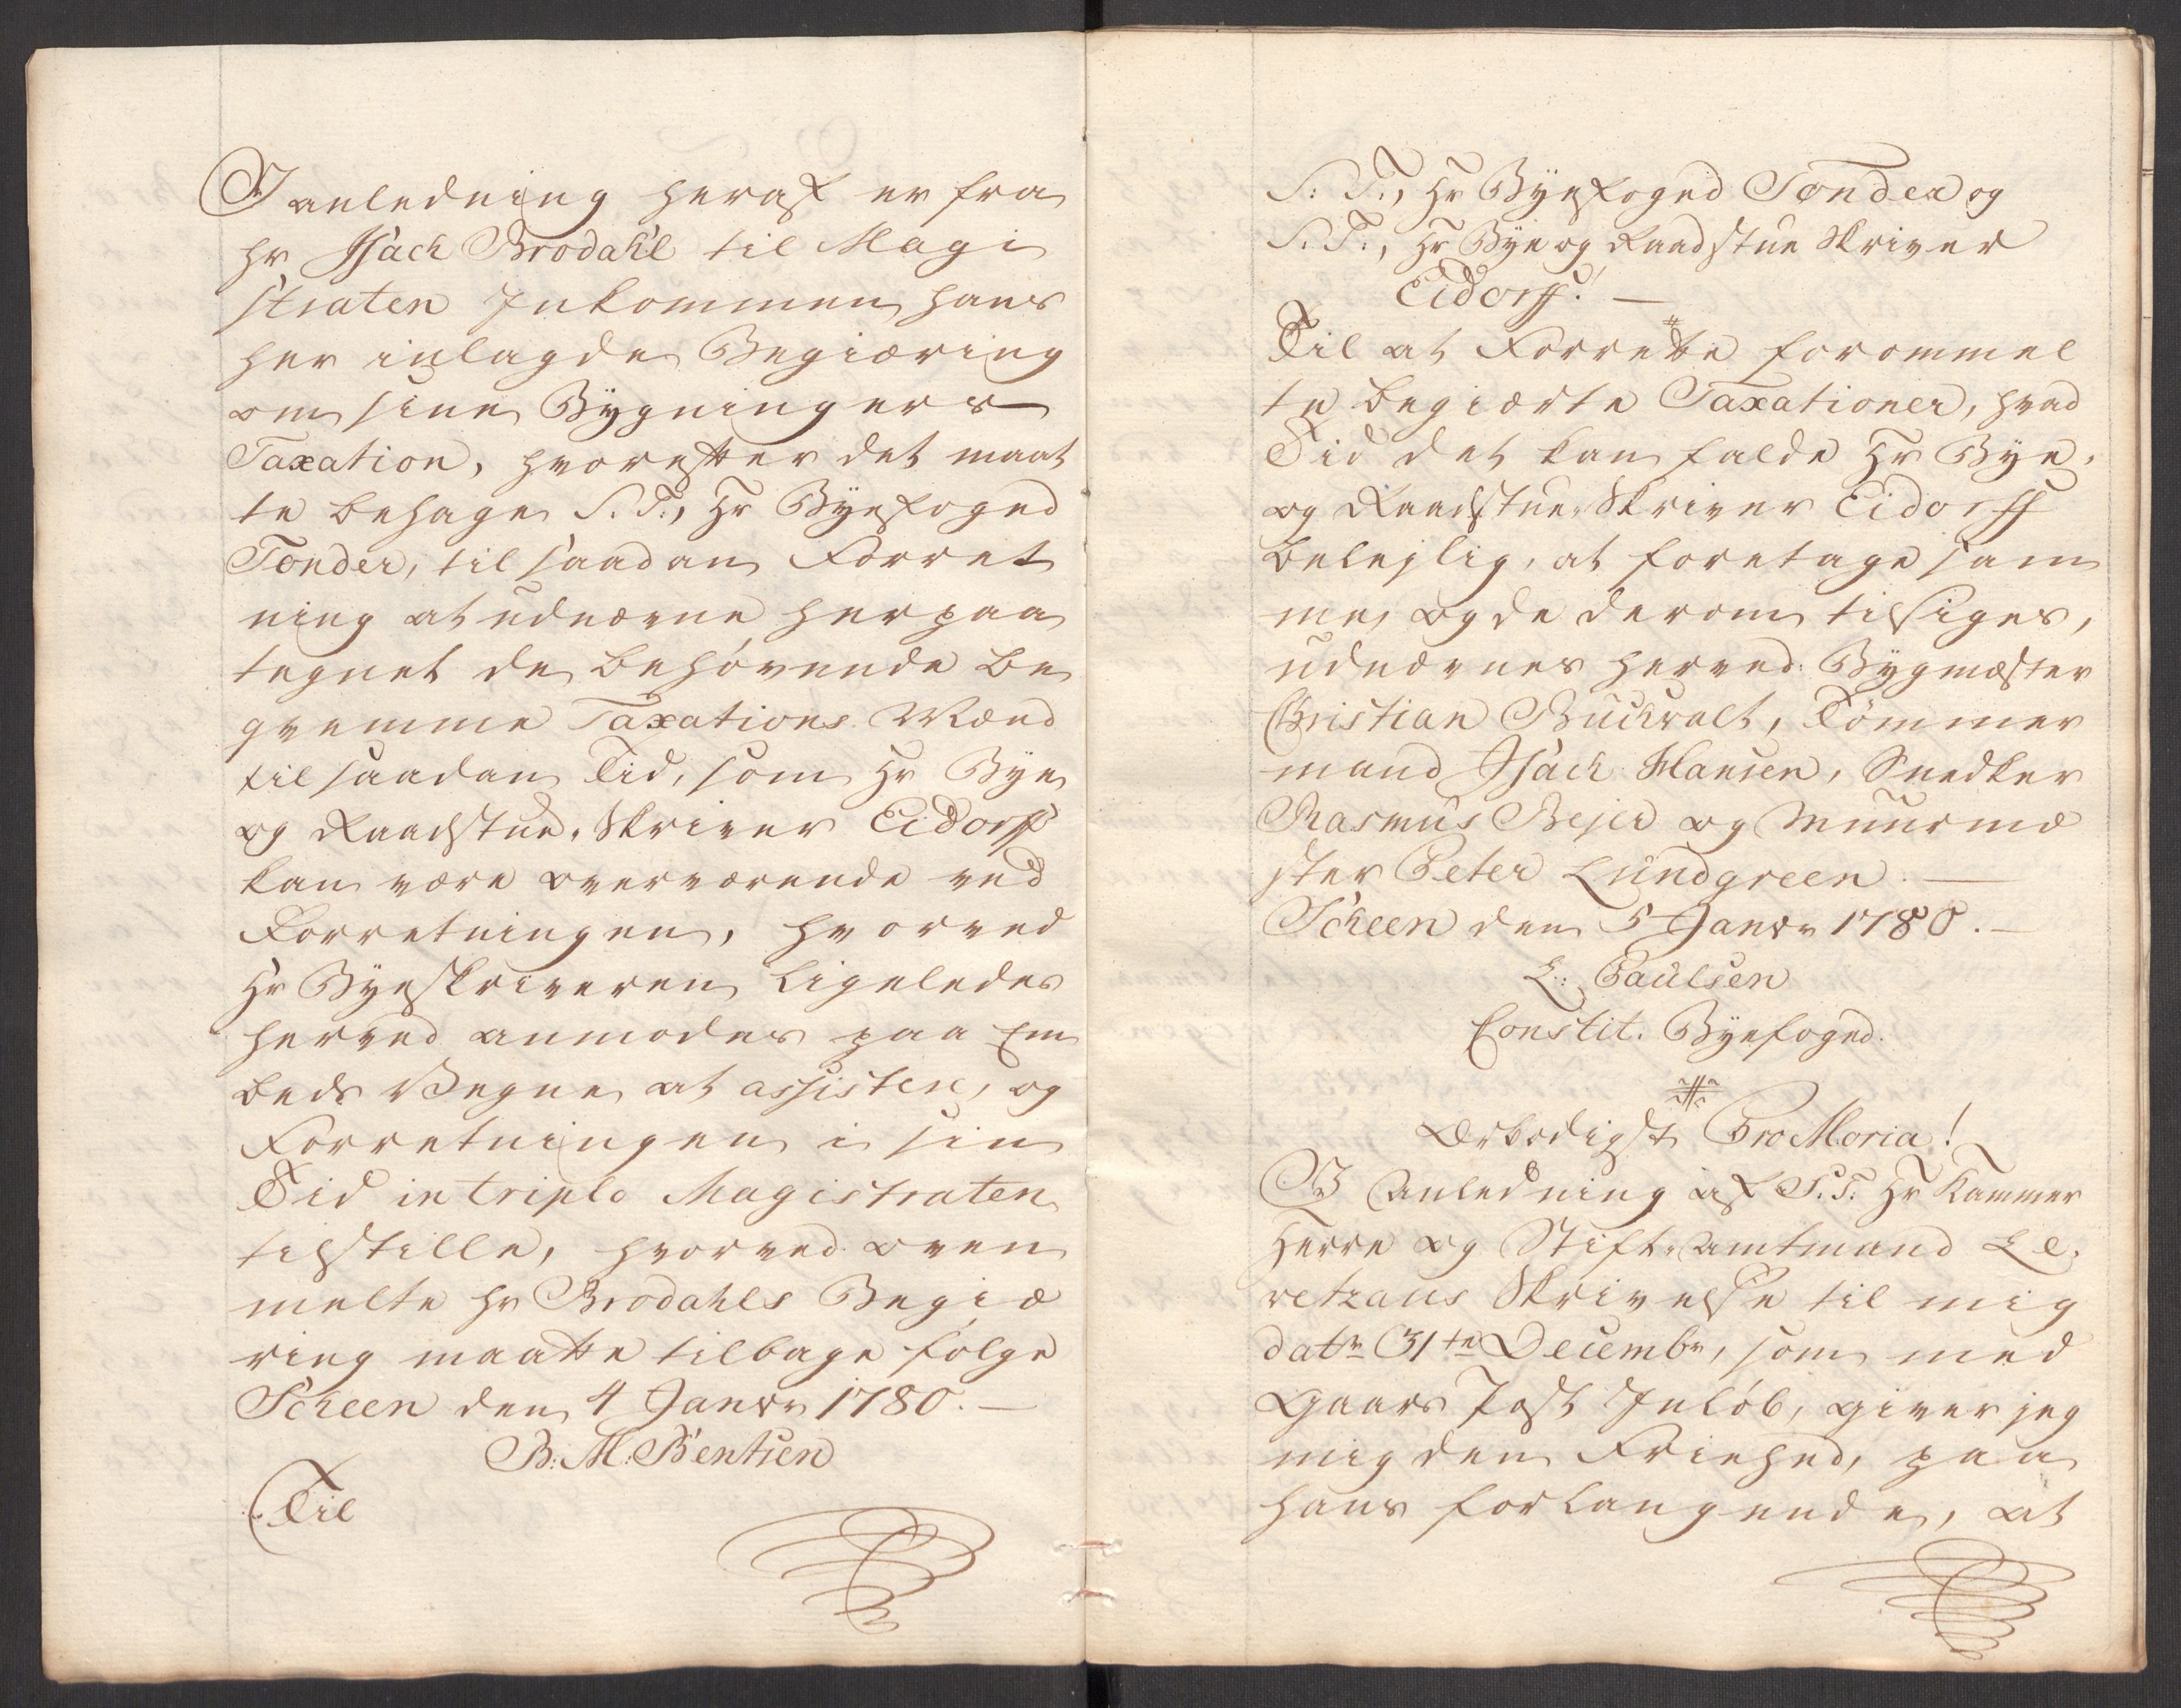 I anledning heraf er fra
hr Isach Brodahl til Magi
straten Inkommen hans
her inlagde Begiæring
om sine Bygningers
Taxation, hvorefter det maat
te behage S. T., Hr Byefoged
Tønder, til saadan Forret
ning at udnævne herpaa
tegnet de behøvende be
qvemme Taxations Mænd
til saadan Tid, som Hr Bye
og Raadstue-Skriver Eidorff
kan være overværende ved
Forretningen, hvorved
Hr Byeskriveren ligeledes
herved anmodes paa Em
beds Vegne at assistere, og
Forretningen i sin
Tid in triplo Magistraten
tilstille, hvorved oven
melte hr Brodahls Begiæ
ring maatte tilbage følge
Scheen den 4 Janvr 1780. —
B: M: Bentsen
Til
S: T:, Hr Byefoged Tønder og
S. T:, Hr Bye og Raadstue Skriver
Eidorff. —
Til at Forrette forommel
te begiærte Taxationer, hvad
Tid det kan falde Hr Bye-
og Raadstue-Skriver Eidorff
belejlig, at foretage sam
me, og de derom tilsiges,
udnævnes herved: Bygmæster
Christian Buckvalt, Tømmer
mand Isach Hansen, Snedker
Rasmus Bejer og Muurmæ
ster Peter Lundgreen. —
Scheen den 5 Janvr 1780. —
L: Paulsen
Constit. Byefoged.
Ærbødigst Pro Moria!
I Anledning af S. T. Hr Kammer
Herre og Stift-Amtmand Le-
vetzaus Skrivelse til mig
datr 31te Decembr, som med
Gaars Post Inløb, giver jeg
mig den Friehed, paa
hans forlangende, at